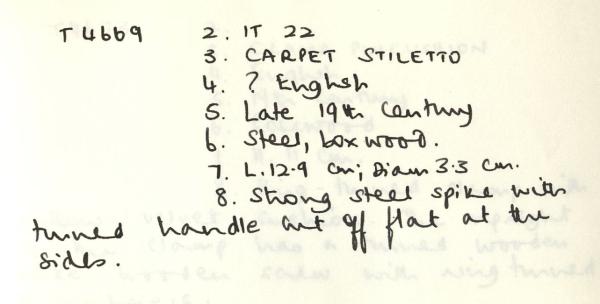 T4669 2. IT 22
3. CARPET STILETTO
4. ? English
5. Late 19th Century
6. Steel, boxwood.
7. L.12.9 cm; Diam 3.3 cm.
8. Strong steel spike with
turned handle cut off flat at the
sides.